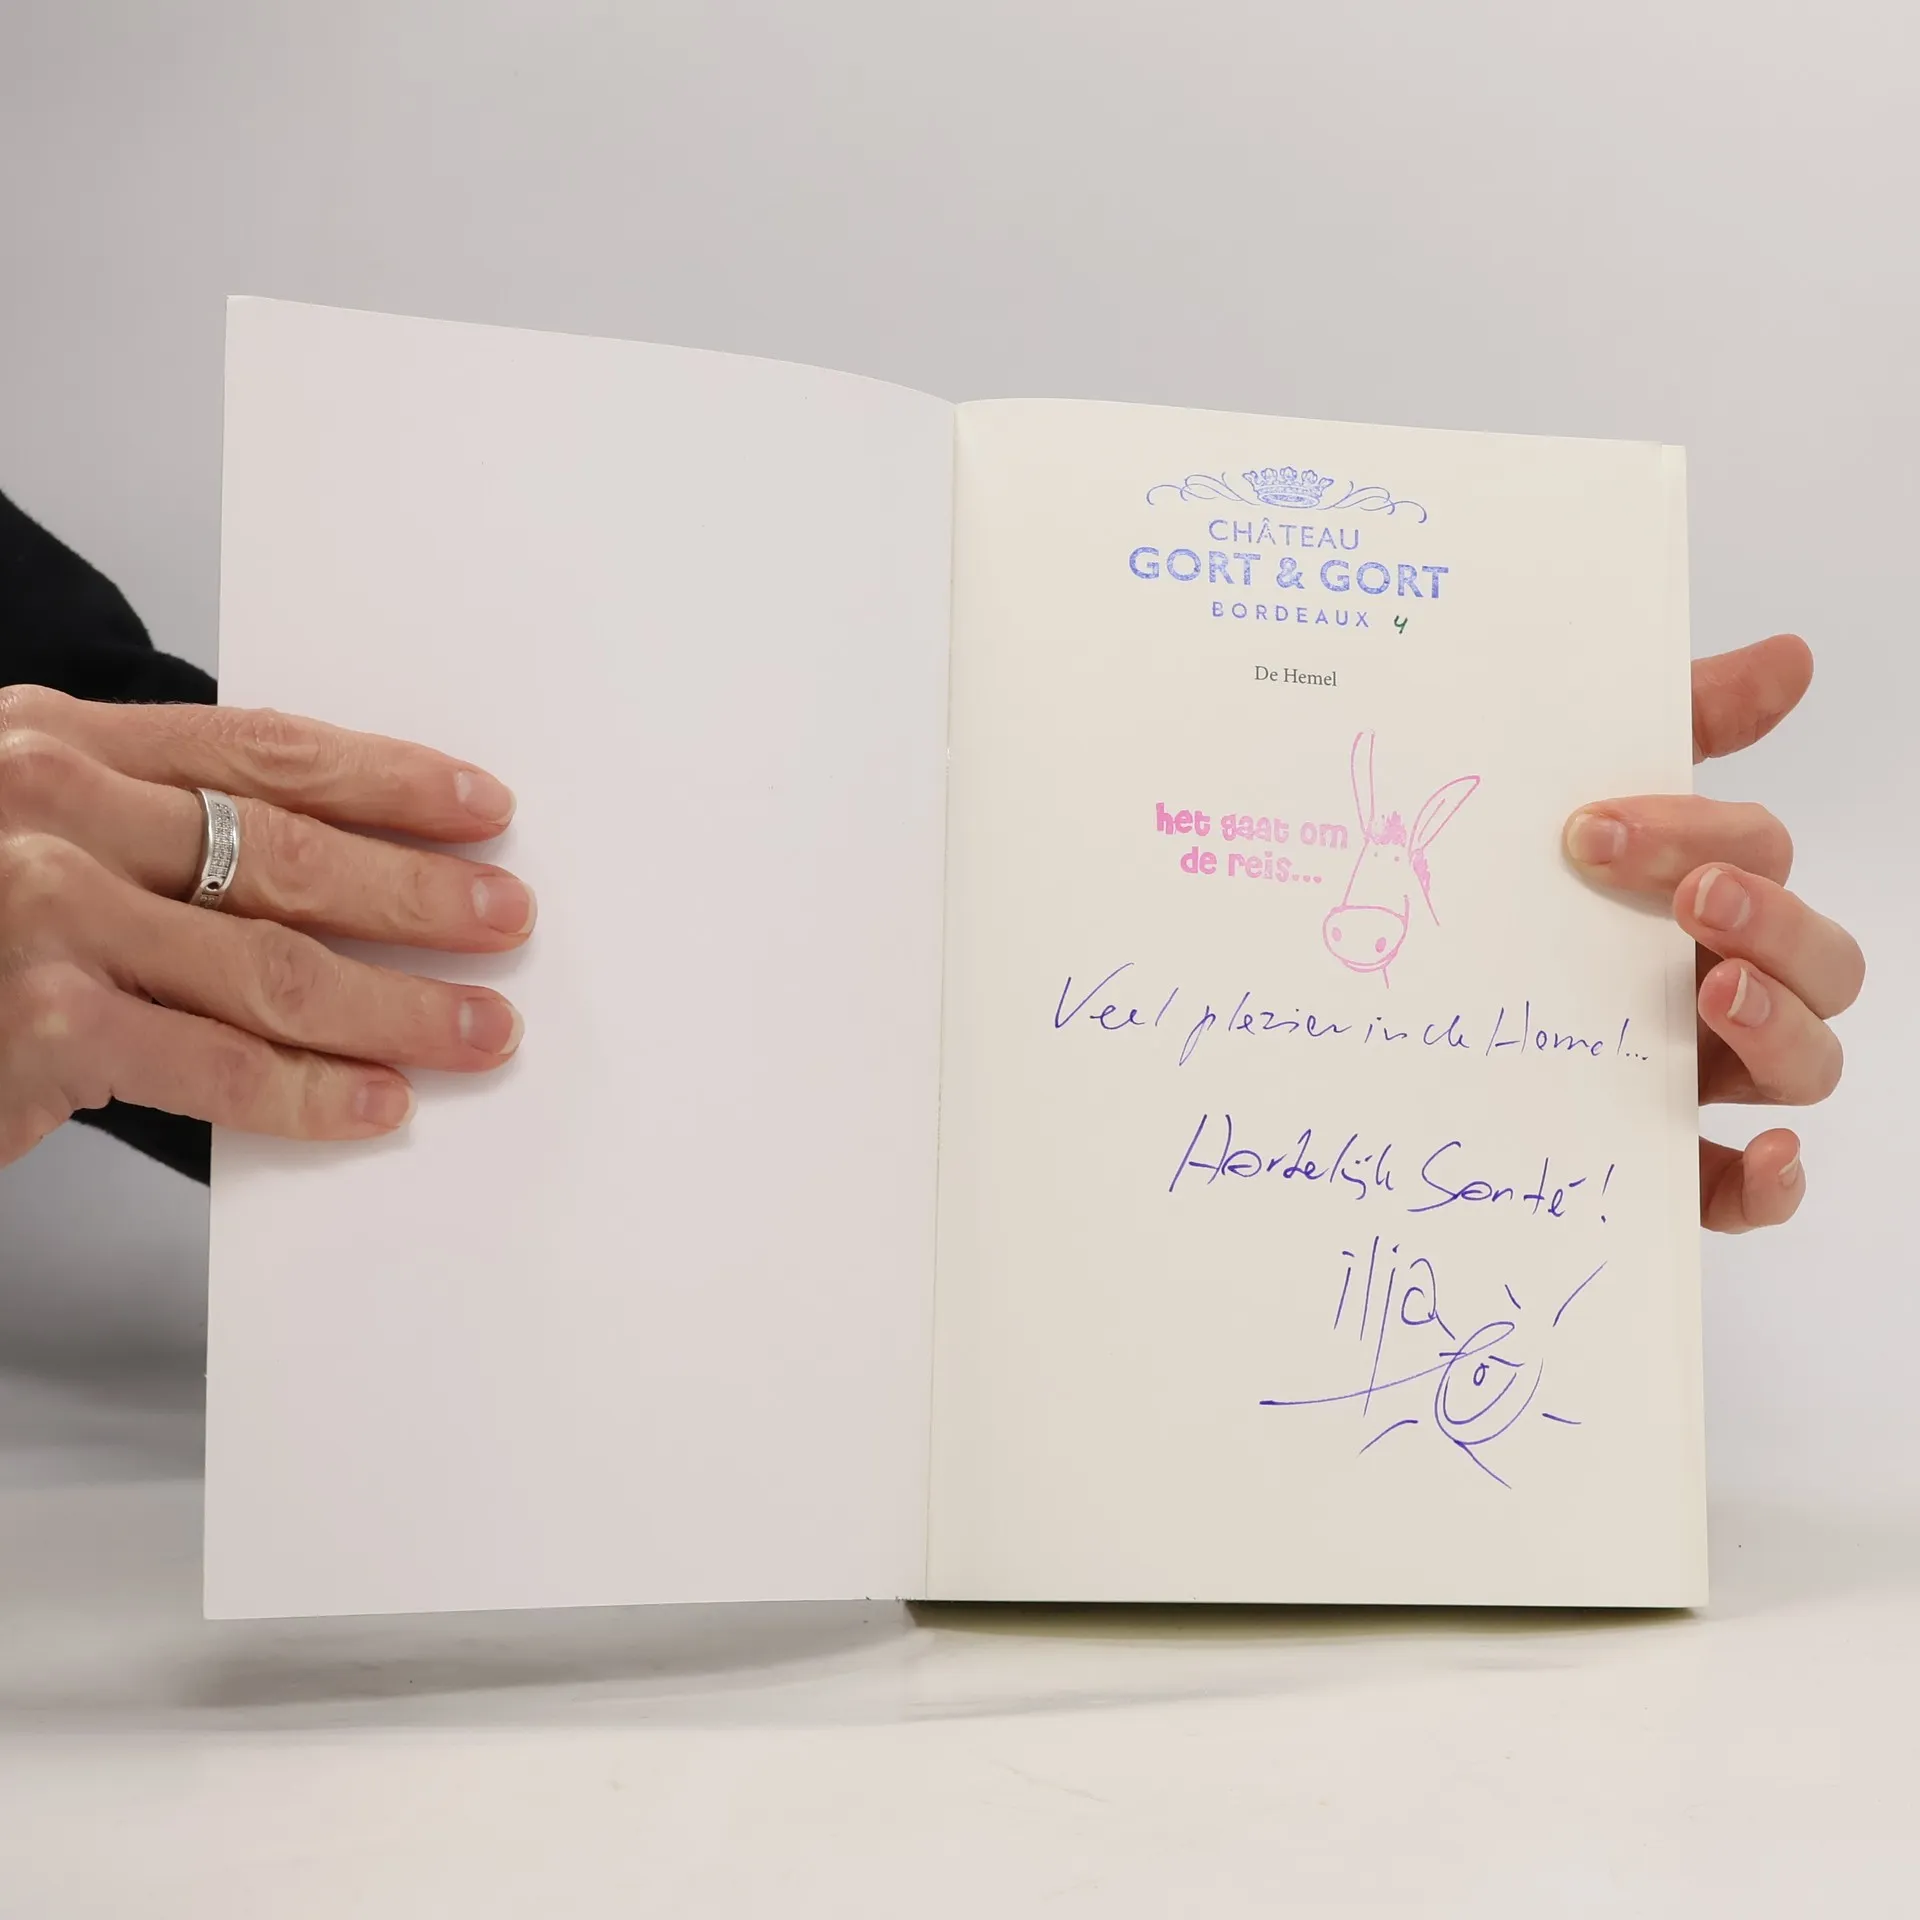 CHÂTEAU
GORT & GORT
BORDEAUX 4
De Hemel
het gaat om
de reis...
Veel plezier in de Hemel...
Hartelijk Santé!
ilja